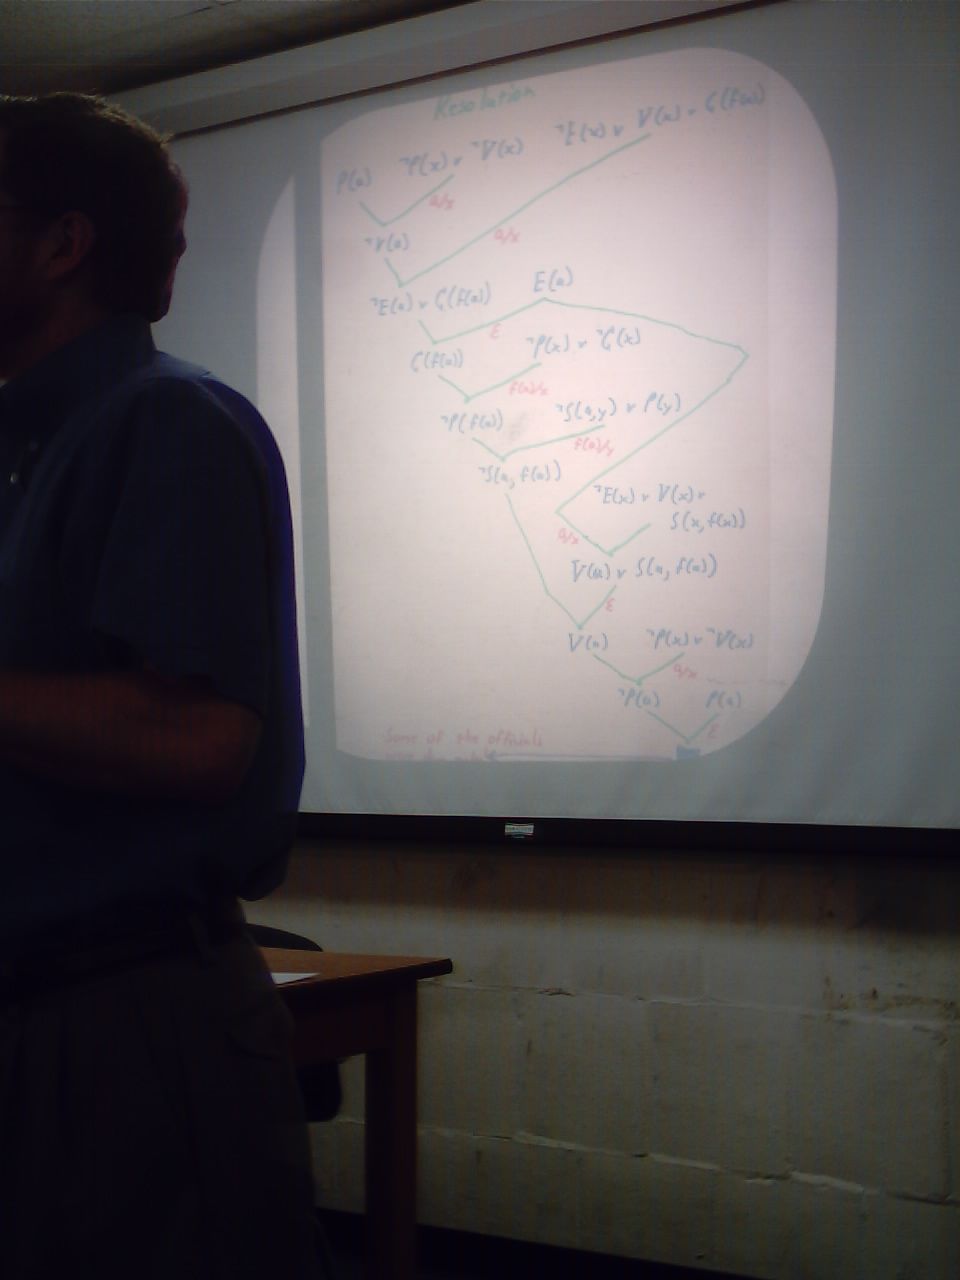 Resolution
P(a) ¬P(x) v ¬V(x) ¬E(x) v V(x) v G(f(x))
a/x
¬V(a) a/x
¬E(a) v G(f(a)) E(a)
ε
G(f(a)) ¬P(x) v ¬G(x)
f(a)/x
¬P(f(a)) ¬S(a,y) v P(y)
f(a)/y
¬S(a, f(a))
¬E(x) v V(x) v
S(x, f(x))
a/x
V(a) v S(a, f(a))
ε
V(a) ¬P(x) v ¬V(x)
a/x
¬P(a) P(a)
ε
Some of the officials